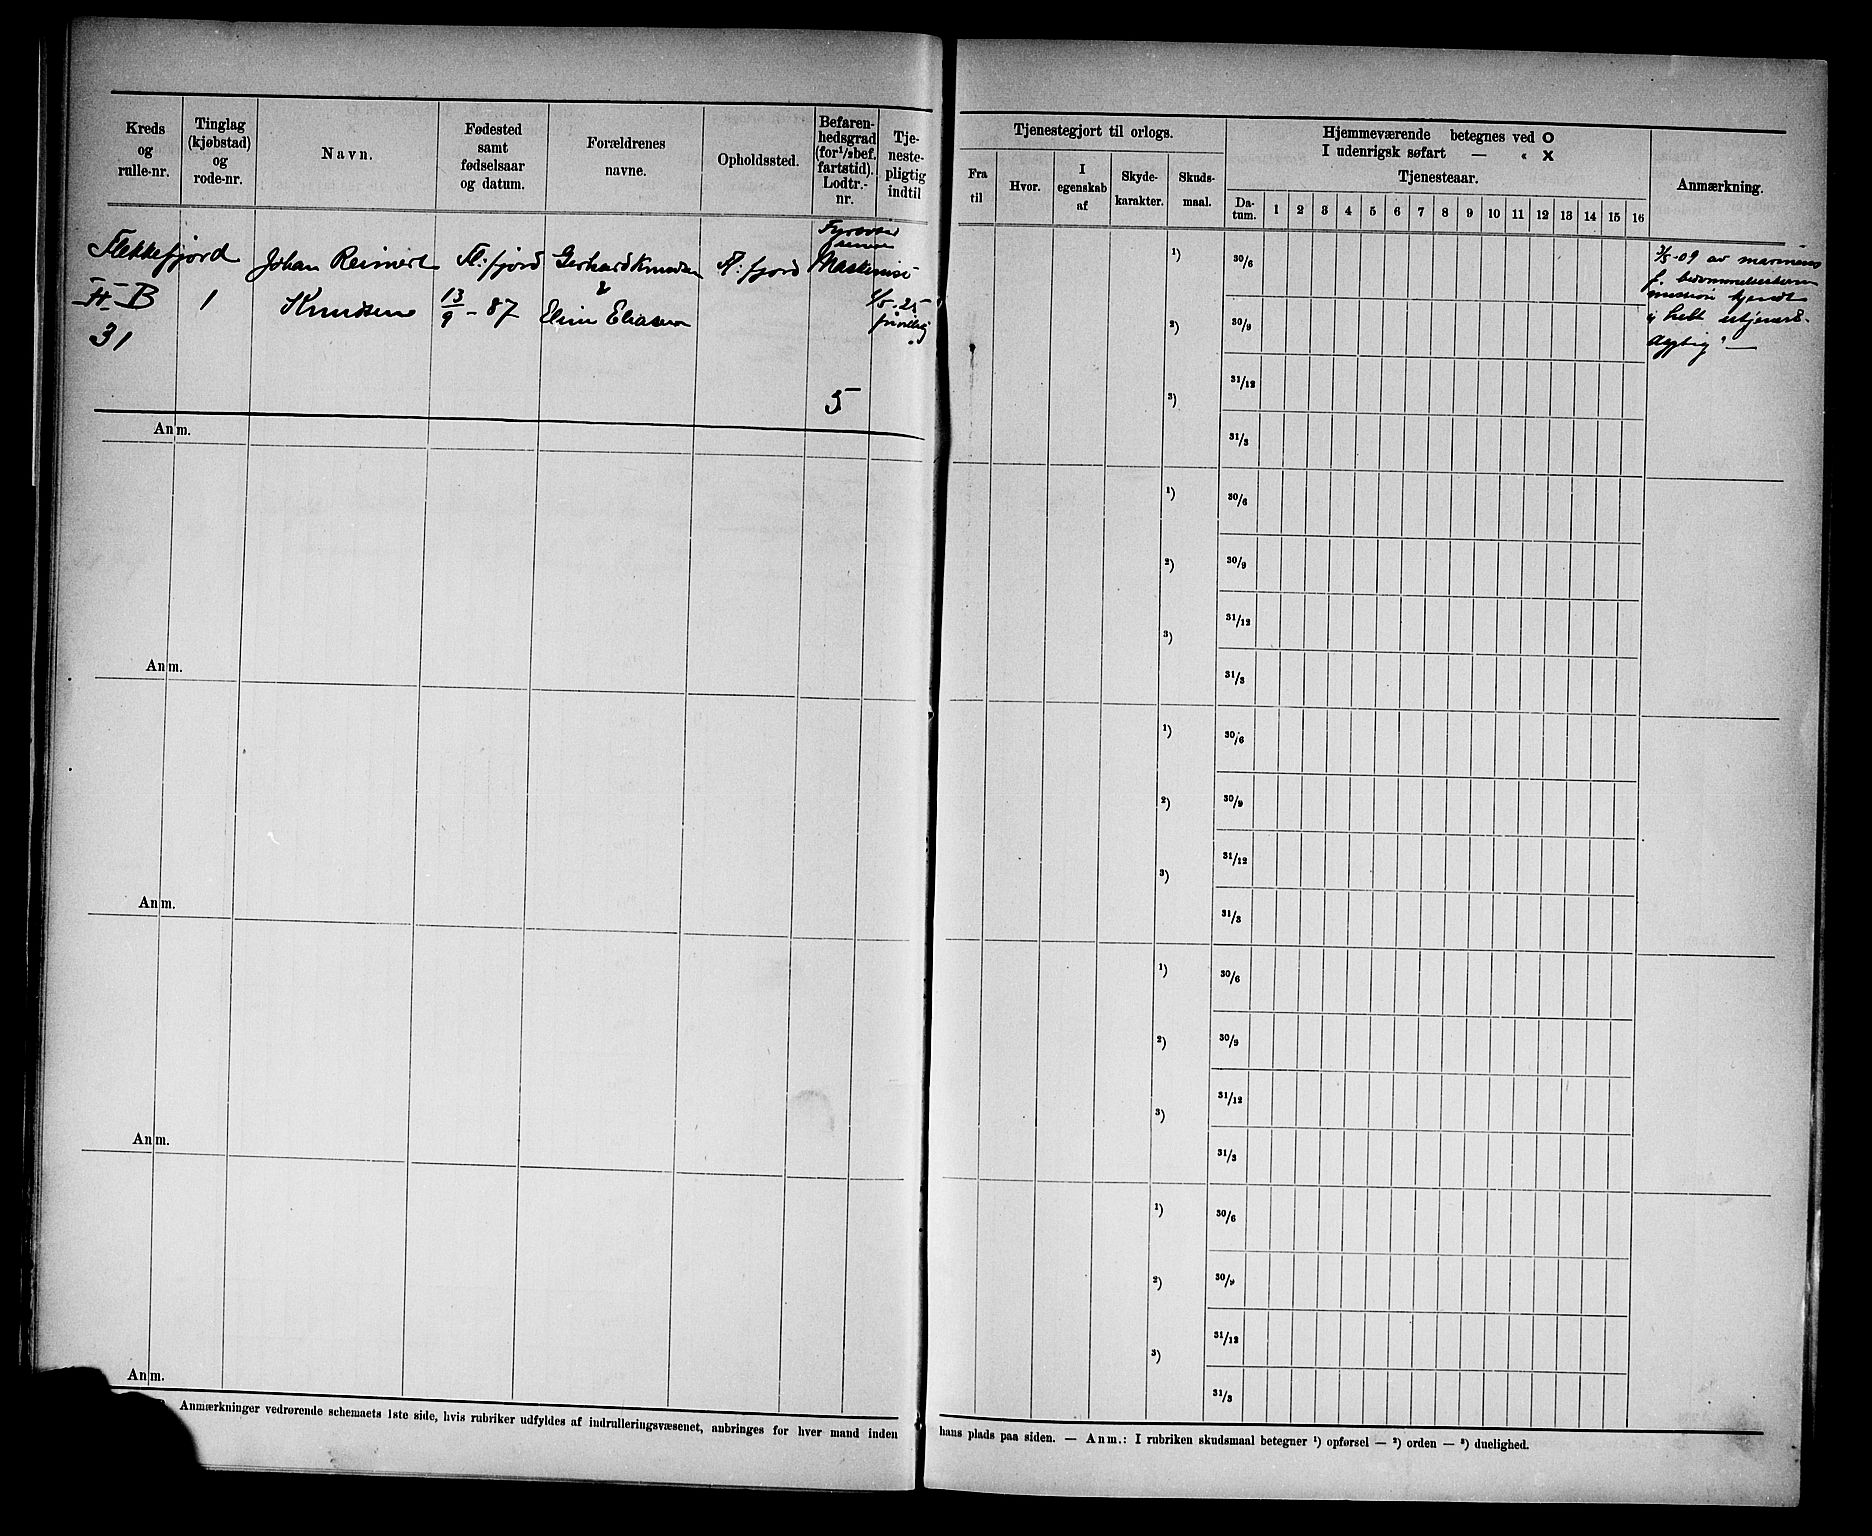 Kreds
og
rulle-nr.
Tinglag
(kjøbstad)
og
rode-nr.
Navn.
Fødested
samt
fødselsaar
og datum.
Forældrenes
navne.
Opholdssted.
Befaren-
hedsgrad
(for 1/2 bef.
fartstid).
Lodtr.-
nr.
Tje-
neste-
pligtig
indtil
Tjenestegjort til orlogs.
Fra
til
Hvor.
I
egenskab
af
Skyde-
karakter.
Skuds-
maal.
Hjemmeværende betegnes ved O
I udenrigsk søfart — « X
Tjenesteaar.
Da-
tum.
1 2 3 4 5 6 7 8 9 10 11 12 13 14 15 16
Anmærkning.
Flekkefjord
B
31
1
Johan Reinert
Knudsen
Fl:fjord
13/9 - 87
Gerhard Knudsen
&
Eline Eliasen
Fl:fjord
Maskinist
5
-25
frivillig
-09 av marinens
Anm.
1)
2)
3)
30/6
30/9
31/12
31/3
Anm.
1)
2)
3)
30/6
30/9
31/12
31/3
Anm.
1)
2)
3)
30/6
30/9
31/12
31/3
Anm.
1)
2)
3)
30/6
30/9
31/12
31/3
Anm.
1)
2)
3)
30/6
30/9
31/12
31/3
Anmærkninger vedrørende schemaets 1ste side, hvis rubriker udfyldes af indrulleringsvæsenet, anbringes for hver mand inden hans plads paa siden. — Anm.: I rubriken skudsmaal betegner 1) opførsel — 2) orden — 3) duelighed.